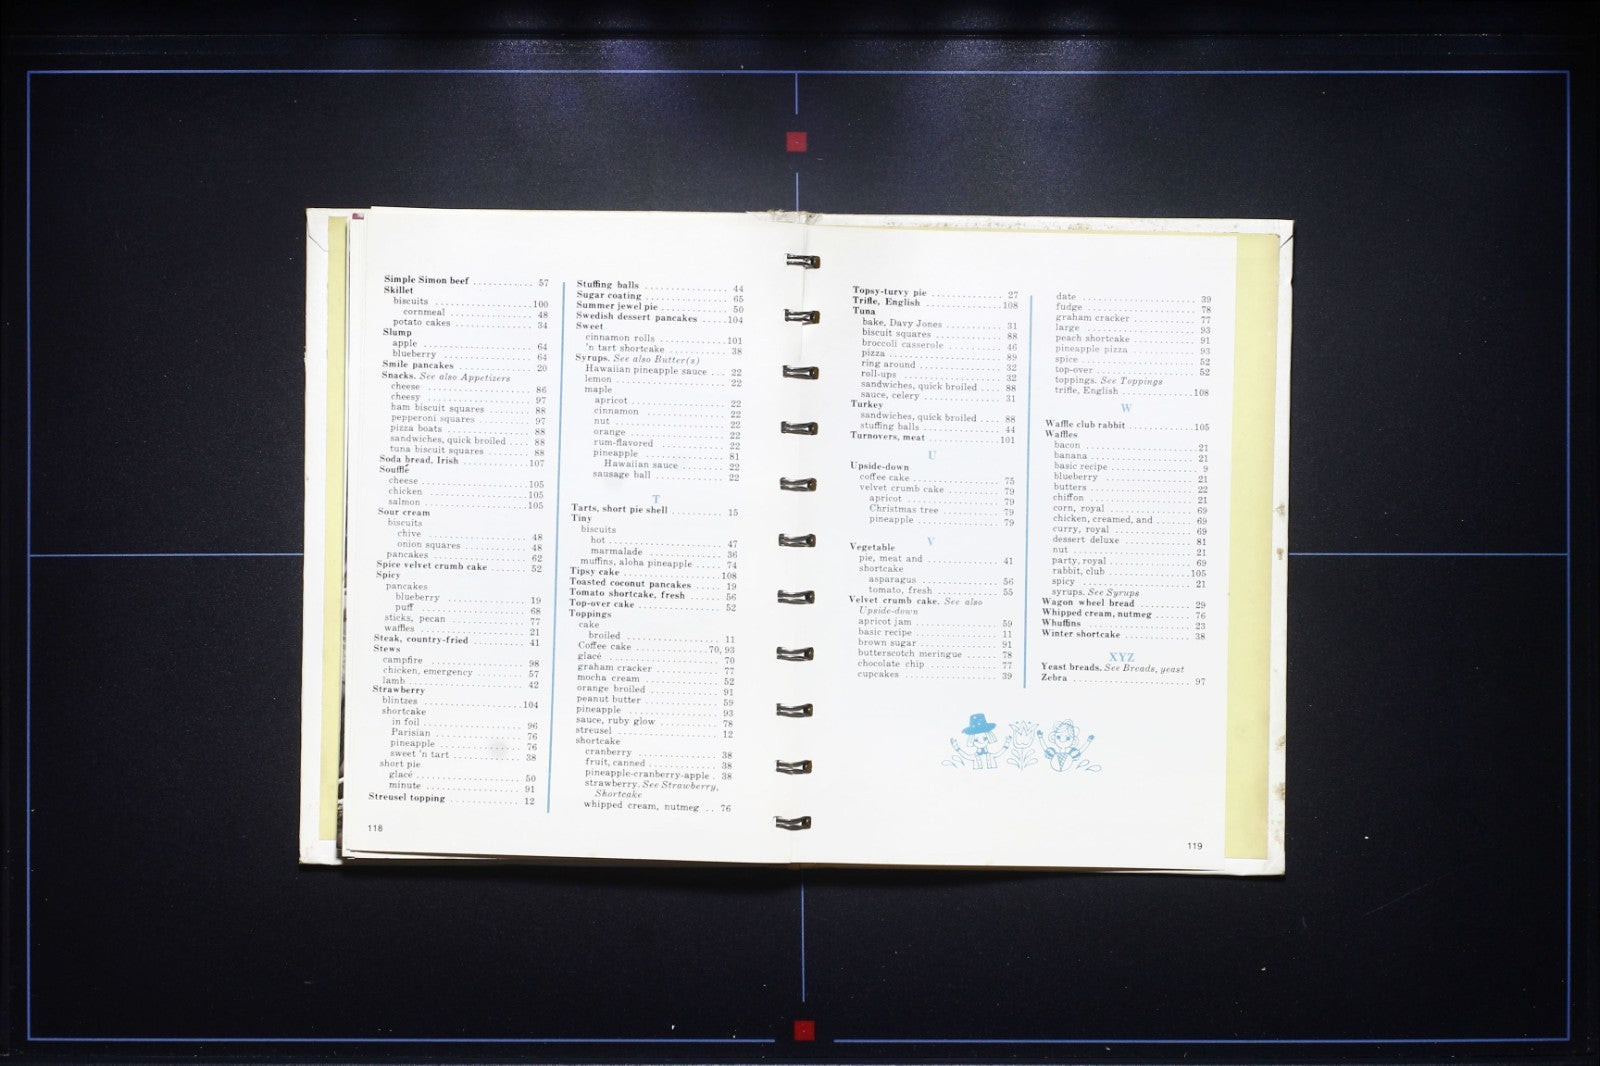 Simple Simon beef ............ 57
Skillet
biscuits .................... 100
cornmeal .................. 48
potato cakes ................ 34
Slump
apple ........................ 64
blueberry .................. 64
Smile pancakes ................ 20
Snacks. See also Appetizers
cheese ...................... 86
cheesy ...................... 97
ham biscuit squares ........ 88
pepperoni squares .......... 97
pizza boats ................ 88
sandwiches, quick broiled .... 88
tuna biscuit squares ........ 88
Soda bread, Irish ............ 107
Soufflé
cheese ...................... 105
chicken .................... 105
salmon ...................... 105
Sour cream
biscuits
chive ...................... 48
onion squares .............. 48
pancakes .................... 62
Spice velvet crumb cake ........ 52
Spicy
pancakes
blueberry .................. 19
puff ...................... 68
sticks, pecan .............. 77
waffles .................... 21
Steak, country-fried .......... 41
Stews
campfire .................... 98
chicken, emergency .......... 57
lamb ........................ 42
Strawberry
blintzes .................... 104
shortcake
in foil .................... 96
Parisian .................. 76
pineapple .................. 76
sweet 'n tart .............. 38
short pie
glacé ...................... 50
minute .................... 91
Streusel topping .............. 12
118
Stuffing balls ................ 44
Sugar coating ................ 65
Summer jewel pie .............. 50
Swedish dessert pancakes ..... 104
Sweet
cinnamon rolls .............. 101
'n tart shortcake ............ 38
Syrups. See also Butter(s)
Hawaiian pineapple sauce ... 22
lemon ...................... 22
maple
apricot .................... 22
cinnamon .................. 22
nut ........................ 22
orange .................... 22
rum-flavored .............. 22
pineapple .................. 81
Hawaiian sauce ............ 22
sausage ball ................ 22
T
Tarts, short pie shell .......... 15
Tiny
biscuits
hot ........................ 47
marmalade ................ 36
muffins, aloha pineapple ..... 74
Tipsy cake .................... 108
Toasted coconut pancakes ..... 19
Tomato shortcake, fresh ....... 56
Top-over cake ................ 52
Toppings
cake
broiled .................... 11
Coffee cake ............... 70, 93
glacé ...................... 70
graham cracker .............. 77
mocha cream ................ 52
orange broiled .............. 91
peanut butter .............. 59
pineapple .................. 93
sauce, ruby glow ............ 78
streusel .................... 12
shortcake
cranberry .................. 38
fruit, canned .............. 38
pineapple-cranberry-apple . 38
strawberry. See Strawberry,
Shortcake
whipped cream, nutmeg .. 76
Topsy-turvy pie .............. 27
Trifle, English ................ 108
Tuna
bake, Davy Jones ............ 31
biscuit squares .............. 88
broccoli casserole ............ 46
pizza ........................ 89
ring around ................ 32
roll-ups .................... 32
sandwiches, quick broiled .... 88
sauce, celery ................ 31
Turkey
sandwiches, quick broiled .... 88
stuffing balls ................ 44
Turnovers, meat .............. 101
U
Upside-down
coffee cake .................. 75
velvet crumb cake ............ 79
apricot .................... 79
Christmas tree ............ 79
pineapple .................. 79
V
Vegetable
pie, meat and .............. 41
shortcake
asparagus ................ 56
tomato, fresh .............. 55
Velvet crumb cake. See also
Upside-down
apricot jam .................. 59
basic recipe ................ 11
brown sugar ................ 91
butterscotch meringue ....... 78
chocolate chip .............. 77
cupcakes .................... 39
date ........................ 39
fudge ...................... 78
graham cracker .............. 77
large ........................ 93
peach shortcake .............. 91
pineapple pizza .............. 93
spice ........................ 52
top-over .................... 52
toppings. See Toppings
trifle, English .............. 108
W
Waffle club rabbit .............. 105
Waffles
bacon ...................... 21
banana ...................... 21
basic recipe ................ 9
blueberry .................. 21
butters ...................... 22
chiffon ...................... 21
corn, royal .................. 69
chicken, creamed, and ....... 69
curry, royal ................ 69
dessert deluxe .............. 81
nut ........................ 21
party, royal ................ 69
rabbit, club ................ 105
spicy ...................... 21
syrups. See Syrups
Wagon wheel bread .......... 29
Whipped cream, nutmeg ...... 76
Whuffins .................... 23
Winter shortcake ............ 38
XYZ
Yeast breads. See Breads, yeast
Zebra ........................ 97
119